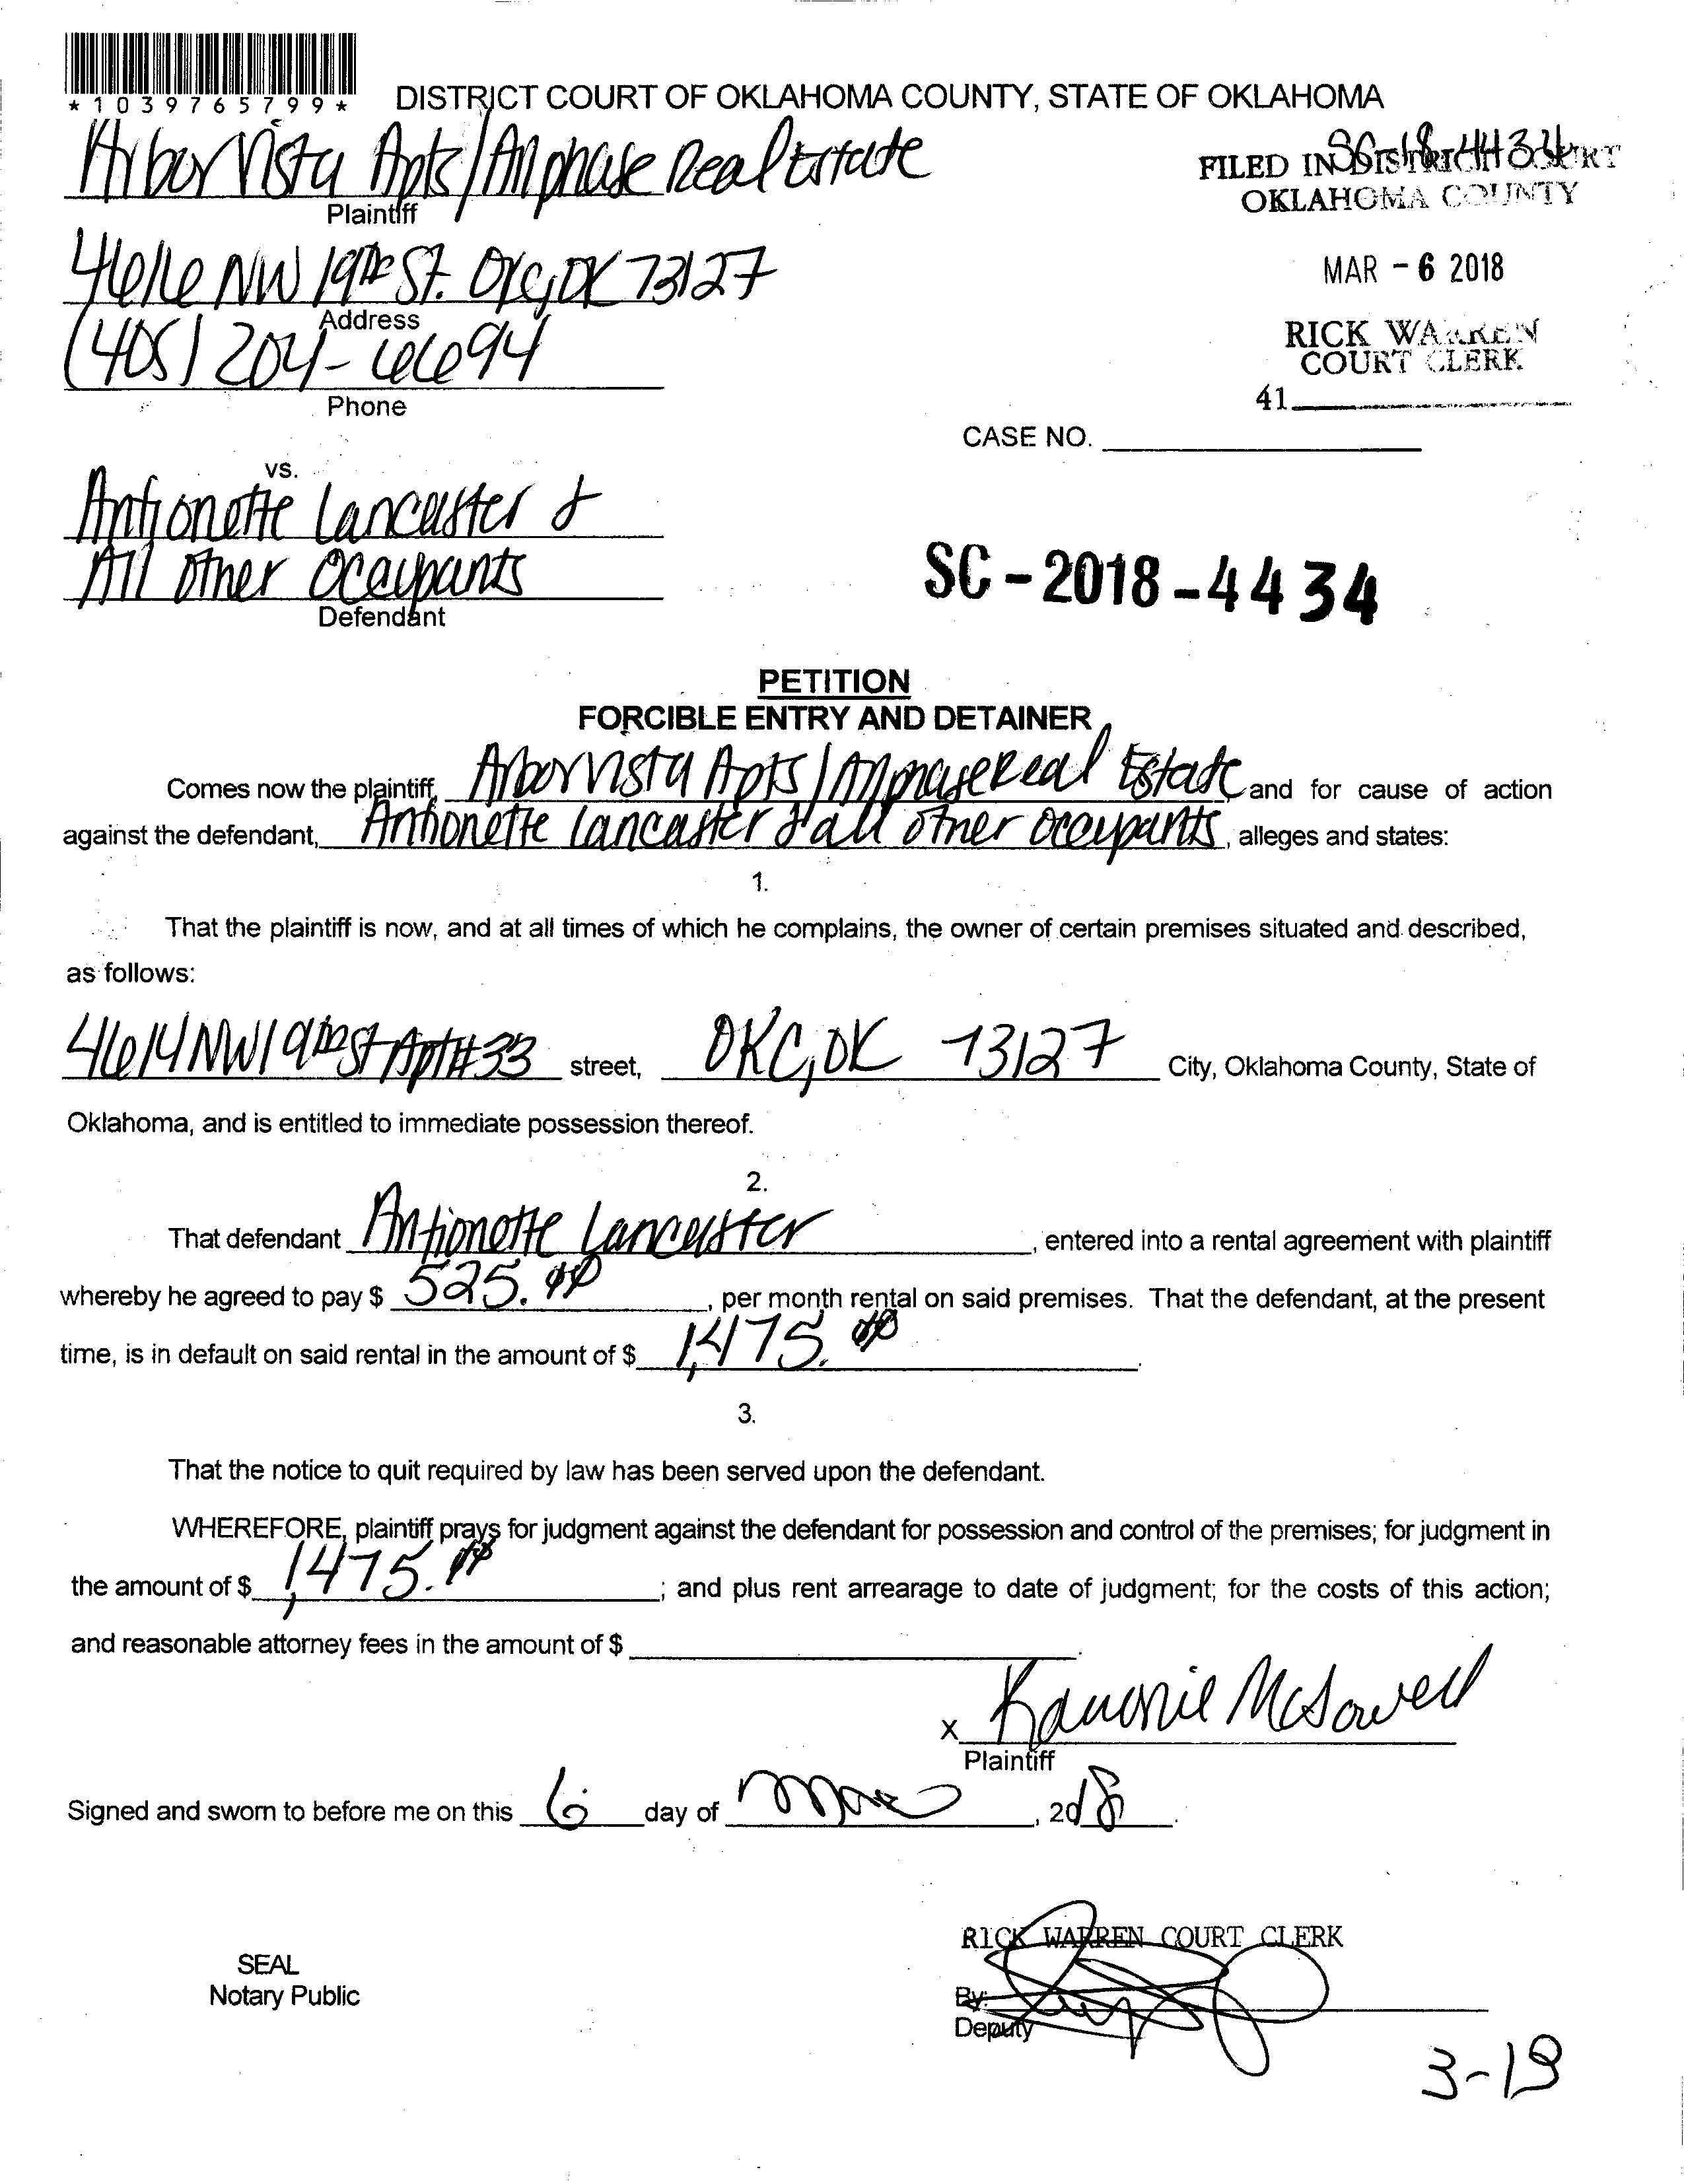 *1039765799*
DISTRICT COURT OF OKLAHOMA COUNTY, STATE OF OKLAHOMA
Arbor Vista Apts/Allphase Real Estate
Plaintiff
SC-18-4434
FILED IN DISTRICT COURT
OKLAHOMA COUNTY
4616 NW 19th St. OKC, OK 73127
Address
MAR - 6 2018
(405) 204-6694
Phone
RICK WARREN
COURT CLERK
41
CASE NO.
vs.
Antionette Lancaster &
All other Occupants
Defendant
SC - 2018 - 4434
PETITION
FORCIBLE ENTRY AND DETAINER
Comes now the plaintiff, Arbor Vista Apts/Allphase Real Estate and for cause of action
against the defendant, Antionette Lancaster & all other occupants, alleges and states:
1.
That the plaintiff is now, and at all times of which he complains, the owner of certain premises situated and described,
as follows:
4614 NW 19th St Apt #33 street, OKC, OK 73127 City, Oklahoma County, State of
Oklahoma, and is entitled to immediate possession thereof.
2.
That defendant Antionette Lancaster, entered into a rental agreement with plaintiff
whereby he agreed to pay $ 525.00, per month rental on said premises. That the defendant, at the present
time, is in default on said rental in the amount of $ 1,475.00.
3.
That the notice to quit required by law has been served upon the defendant.
WHEREFORE, plaintiff prays for judgment against the defendant for possession and control of the premises; for judgment in
the amount of $ 1,475.00; and plus rent arrearage to date of judgment; for the costs of this action;
and reasonable attorney fees in the amount of $ .
x McDowell
Plaintiff
Signed and sworn to before me on this 6 day of Mar, 2018.
RICK WARREN COURT CLERK
SEAL
Notary Public
By:
Deputy
3-19